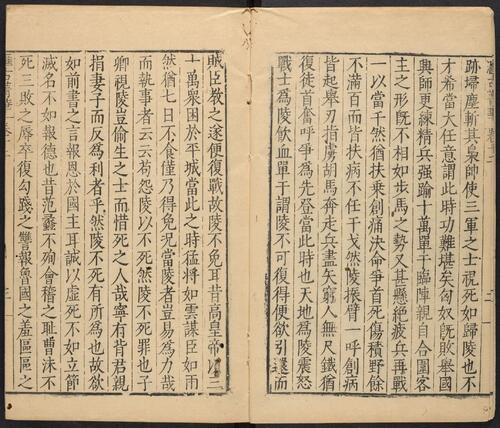 跡掃塵斬其梟帥使三軍之士視死如歸陵也不
才希當大任意謂此時功難堪矣匈奴旣敗舉國
興師更練精兵强踰十萬單于臨陣親自合圍客
主之形旣不相如步馬之勢又甚懸絶疲兵再戰
一以當千然猶扶乗創痛決命爭首死傷積野餘
不滿百而皆扶病不任干戈然陵振臂一呼創病
皆起舉刃指虜胡馬奔走兵盡矢窮人無尺鐵猶
復徒首奮呼爭爲先登當此時也天地爲陵震怒
戰士爲陵飲血單于謂陵不可復得便欲引還而
賊臣敎之遂便復戰故陵不免耳昔高皇帝以三
十萬衆困於平城當此之時猛將如雲謀臣如雨
然猶七日不食僅乃得免況當陵者豈易爲力哉
而執事者云云苟怨陵以不死然陵不死罪也子
卿視陵豈偷生之士而惜死之人哉寧有背君親
捐妻子而反爲利者乎然陵不死有所爲也故欲
如前書之言報恩於國主耳誠以虛死不如立節
滅名不如報德也昔范蠡不殉會稽之恥曹沬不
死三敗之辱卒復勾踐之讐報魯國之羞區區之